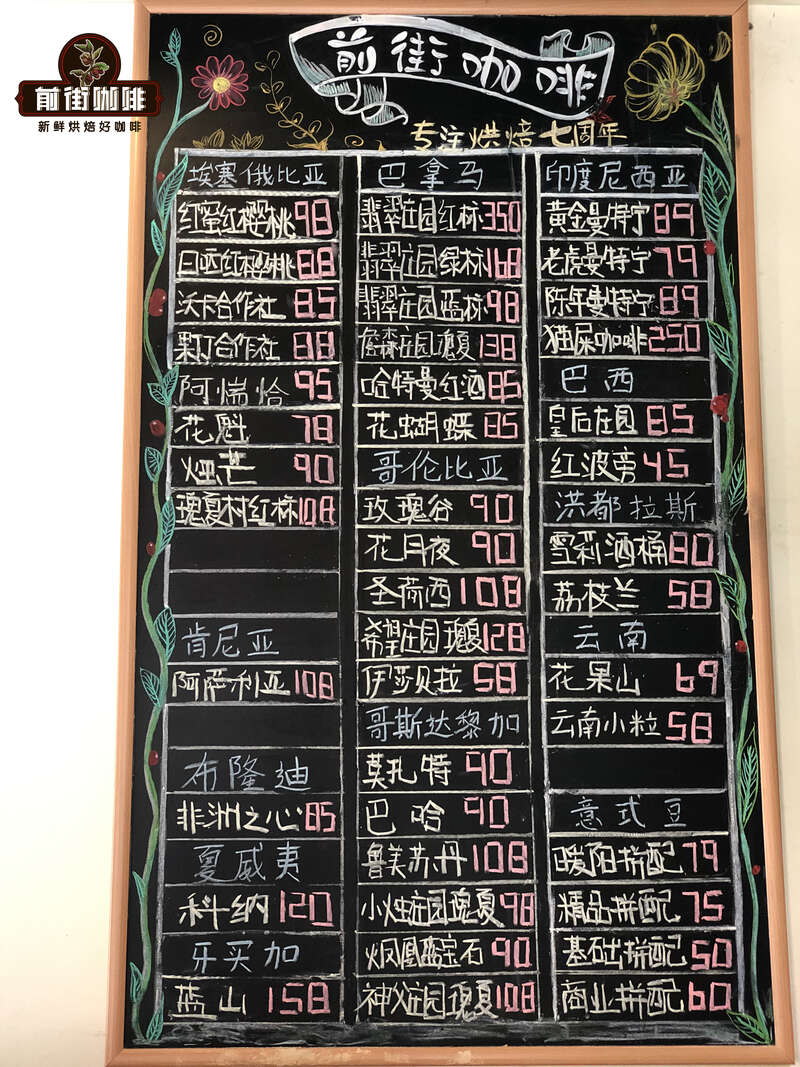 前街咖啡
新鲜烘焙好咖啡
前街咖啡
专注烘焙七周年
埃塞俄比亚
红蜜红樱桃 98
日晒红樱桃 88
沃卡合作社 85
果丁合作社 88
阿惴恰 95
花魁 78
烛芒 90
瑰夏村红标 108
肯尼亚
阿萨利亚 108
布隆迪
非洲之心 85
夏威夷
科纳 120
牙买加
蓝山 158
巴拿马
翡翠庄园红标 350
翡翠庄园绿标 168
翡翠庄园蓝标 98
詹森庄园瑰夏 138
哈特曼红酒 85
花蝴蝶 85
哥伦比亚
玫瑰谷 90
花月夜 90
圣荷西 108
希望庄园瑰夏 128
伊莎贝拉 58
哥斯达黎加
莫扎特 90
巴哈 90
鲁美苏丹 108
小烛庄园瑰夏 98
火凤凰蓝宝石 90
神父庄园瑰夏 108
印度尼西亚
黄金曼特宁 89
老虎曼特宁 79
陈年曼特宁 89
猫屎咖啡 250
巴西
皇后庄园 85
红波旁 45
洪都拉斯
雪莉酒桶 80
荔枝兰 58
云南
花果山 69
云南小粒 58
意式豆
暖阳拼配 79
精品拼配 75
基础拼配 50
商业拼配 60